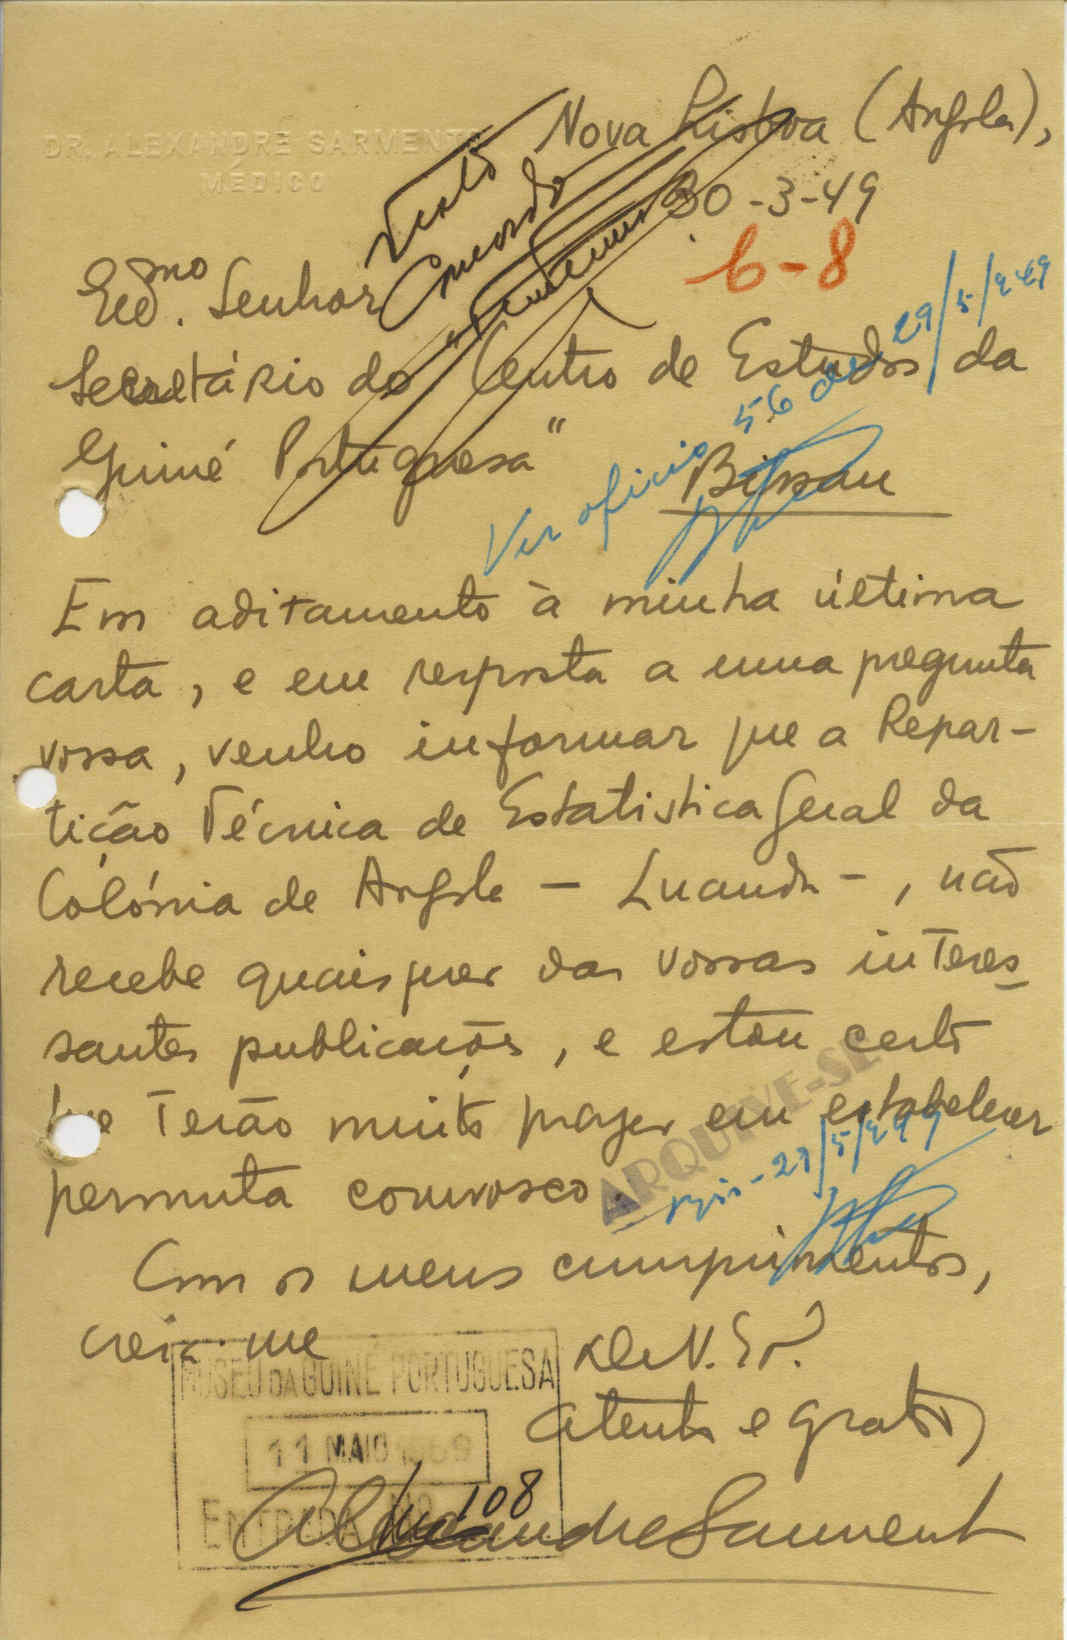 DR. ALEXANDRE SARMENTO
MÉDICO
Nova Lisboa (Angola),
30-3-49
6-8
Exmo. Senhor
Secretário do Centro de Estudos da
Guiné Portuguesa"
Bissau
Ver ofício 56 de 29/5/949
Em aditamento à minha última
carta, e em resposta a uma pregunta
vossa, venho informar que a Repar-
tição Técnica de Estatística Geral da
Colónia de Angola - Luanda -, não
recebe quaisquer das vossas interes-
santes publicações, e estou certo
que terão muito prazer em estabelecer
permuta comvosco.
ARQUIVE-SE
29/5/949
Com os meus cumprimentos,
creia-me
de V. Exª.
atento e grato,
MUSEU DA GUINÉ PORTUGUESA
11 MAIO
ENTRADA Nº 108
Alexandre Sarmento